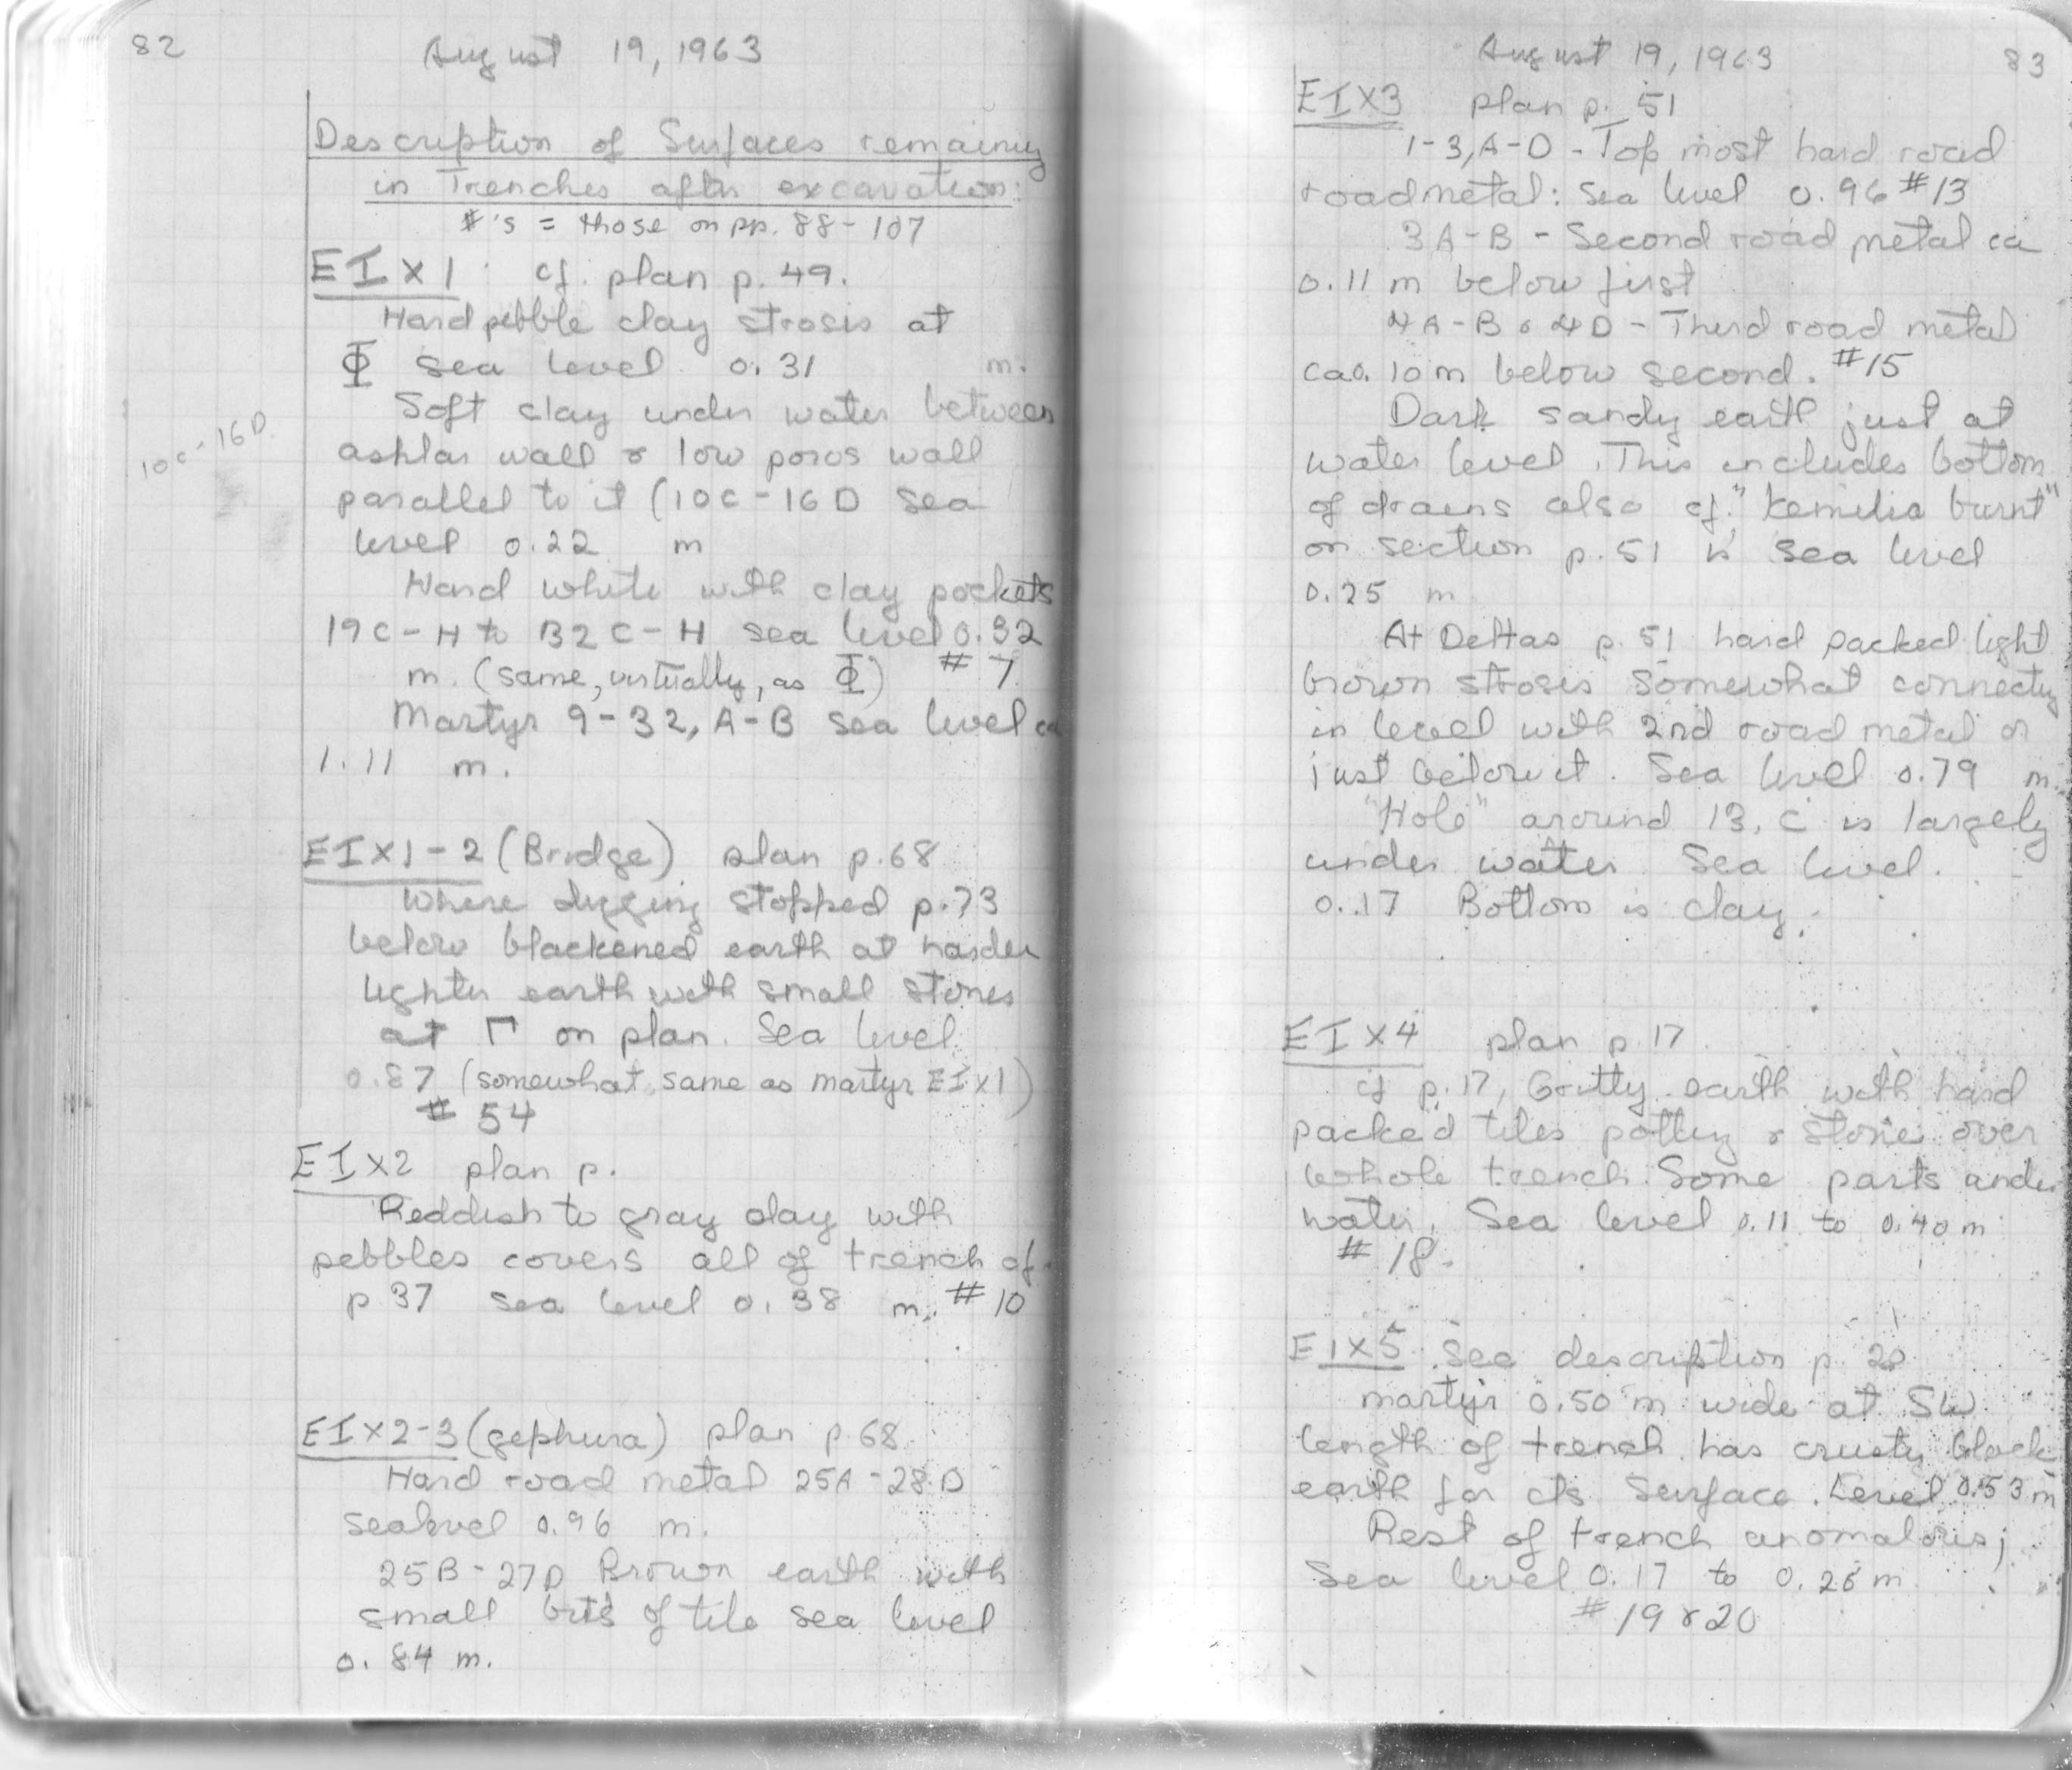 82
August 19, 1963
Description of Surfaces remaining
in Trenches after excavation:
#'s = those on pp. 88-107
EIX1 cf. plan p. 49.
Hard pebble clay strosis at
Φ sea level 0.31 m.
Soft clay under water between
ashlar wall & low poros wall
parallel to it (10C-16D sea
level 0.22 m
10C-16D
Hard white with clay pockets
19C-H to B2C-H sea level 0.32
m. (same, virtually, as Φ) #7
Martyr 9-32, A-B sea level ca
1.11 m.
EIX1-2 (Bridge) plan p.68
Where digging stopped p.73
below blackened earth at harder
lighter earth with small stones
at Γ on plan. Sea level
0.87 (somewhat same as martyr EIX1)
# 54
EIX2 plan p.
Reddish to gray clay with
pebbles covers all of trench cf.
p 37 sea level 0.38 m. #10
EIX2-3 (gephura) plan p 68
Hard road metal 25A-28D
sealevel 0.96 m.
25B-27D Brown earth with
small bits of tile sea level
0.84 m.
August 19, 1963
83
EIX3 plan p. 51
1-3, A-D - Top most hard road
roadmetal: Sea level 0.96 #13
3A-B - Second road metal ca
0.11 m below first
4A-B & 4D - Third road metal
ca 0.10 m below second. #15
Dark sandy earth just at
water level. This includes bottom
of drains also cf. "Kemilia burnt"
on section p. 51 is sea level
0.25 m
At Deltas p. 51 hard packed light
brown strosis somewhat connecting
in level with 2nd road metal or
just below it. Sea level 0.79 m.
"Hole" around 13, C is largely
under water Sea level.
0.17 Bottom is clay.
EIX4 plan p. 17
cf p. 17, Gritty earth with hard
packed tiles pottery & stones over
whole trench. Some parts under
water. Sea level 0.11 to 0.40 m
# 18.
EIX5 See description p. 20
martyr 0.50 m wide at SW
length of trench has crusty black
earth for its surface. Level 0.53 m
Rest of trench anomalous;
Sea level 0.17 to 0.26 m
# 19 & 20